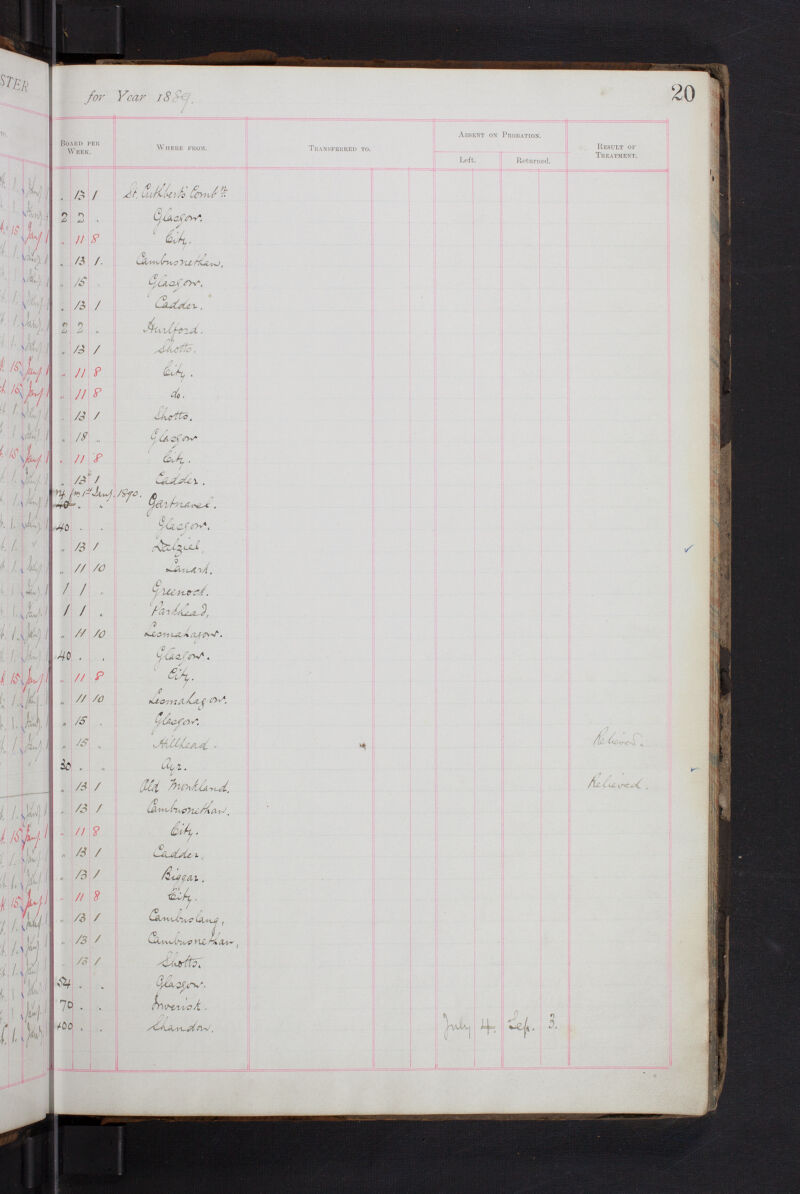 STER
for Year 1889.
20
BOARD PER WEEK.
WHERE FROM.
TRANSFERRED TO.
ABSENT ON PROBATION.
Left.
Returned.
RESULT OF TREATMENT.
. 13 1 St. Cuthberts Combtn
2 2 . Glasgow.
. 11 8 City.
. 13 1. Cambusnethan.
. 15 . Glasgow.
. 13 1 Cadder.
2 2 . Hurlford.
. 13 1 Shotts.
. 11 8 City.
. 11 8 do.
. 13 1 Shotts.
. 18 . Glasgow
. 11 8 City.
. 13 1 Cadder.
fm 1st Jany. 1890.
40 . . Gartnavel.
40 . . Glasgow.
. 13 1 Dalziel.
. 11 10 Lanark.
1 1 . Greenock.
1 1 . Parkhead.
. 11 10 Lesmahagow.
40 . . Glasgow.
. 11 8 City.
. 11 10 Lesmahagow.
. 15 . Glasgow.
. 15 . Hillhead. Relieved.
30 . . Ayr.
. 13 1 Old Monkland. Relieved.
. 13 1 Cambusnethan.
. 11 8 City.
. 13 1 Cadder.
. 13 1 Biggar.
. 11 8 City.
. 13 1 Cambuslang,
. 13 1 Cambusnethan,
. 13 1 Shotts.
54 . . Glasgow.
70 . . Inverisk.
400 . . Shandon. July 4. Sep. 3.